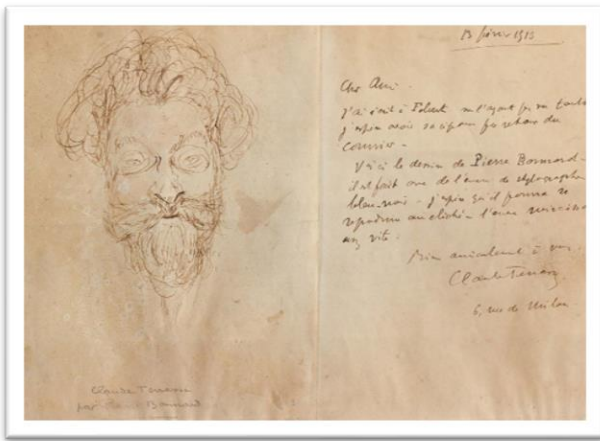 13 février 1913
Cher Ami -
J'ai écrit à Polart ne l'ayant pas vu
j'espère avoir sa réponse par retour du
courrier -
Voici le dessin de Pierre Bonnard -
il est fait avec de l'encre de stylographe
bleu-noir - j'espère qu'il pourra se
reproduire au cliché - l'encre
vite.
Bien amicalement à vous
Claude Terrasse
6, rue de Milan
Claude Terrasse
par Bonnard